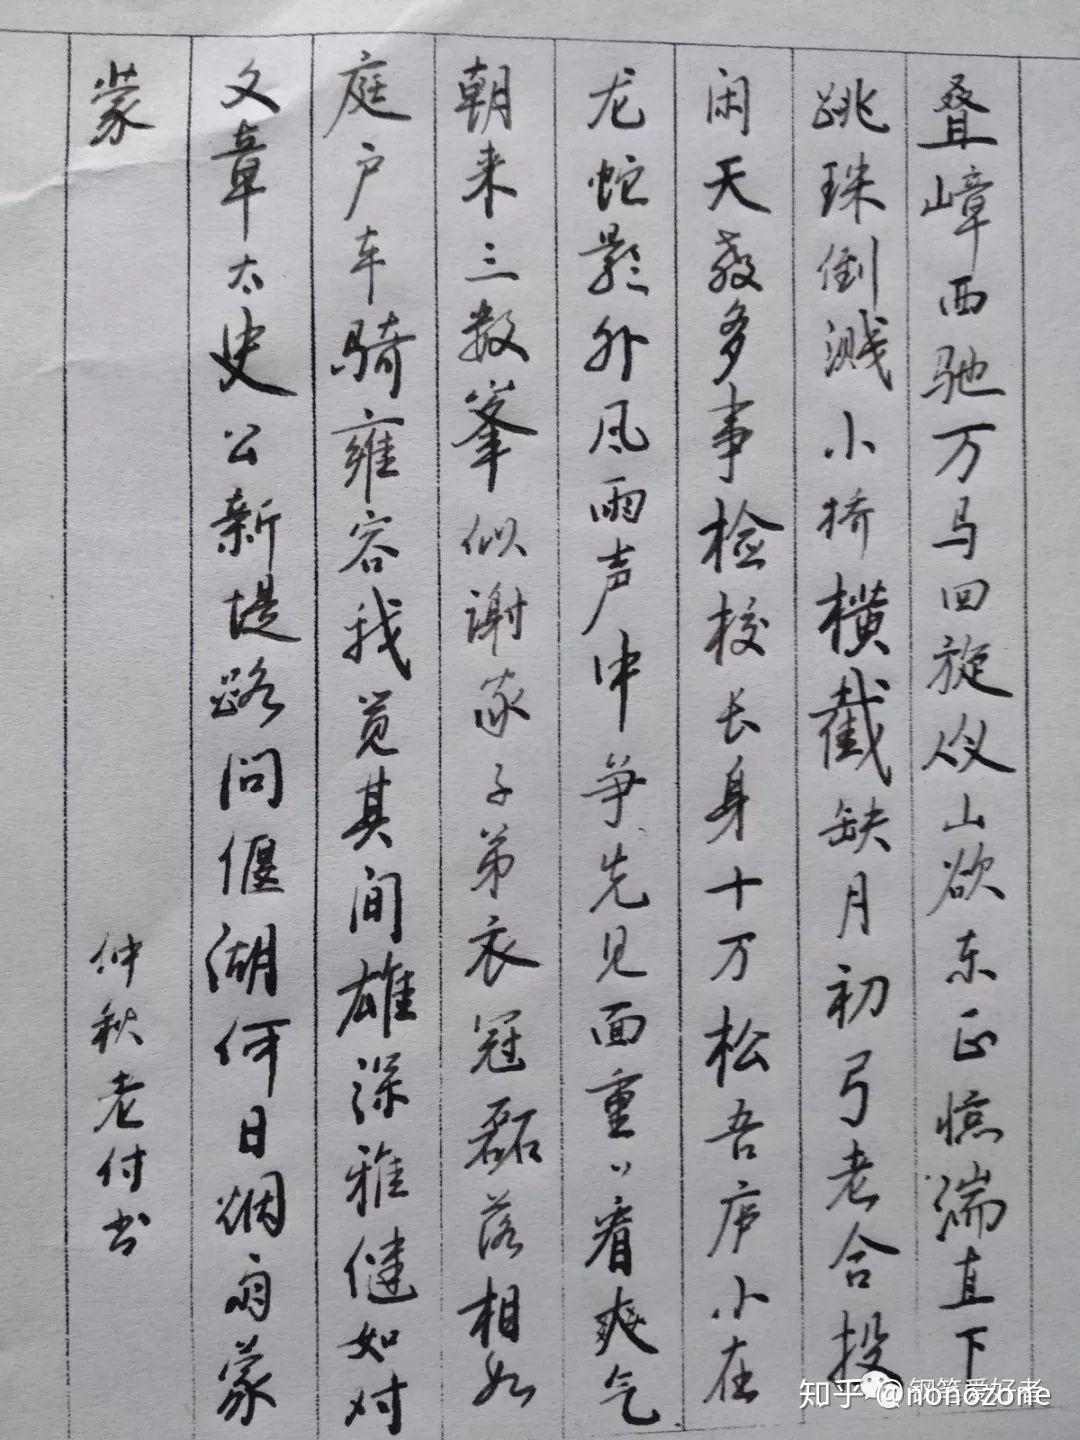 叠嶂西驰万马回旋众山欲东正惊湍直下
跳珠倒溅小桥横截缺月初弓老合投
闲天教多事检校长身十万松吾庐小在
龙蛇影外风雨声中争先见面重〃看爽气
朝来三数峯似谢家子弟衣冠磊落相如
庭户车骑雍容我觉其间雄深雅健如对
文章太史公新堤路问偃湖何日烟雨蒙
蒙
仲秋老付书
钢笔爱好者
知乎 @nonozone